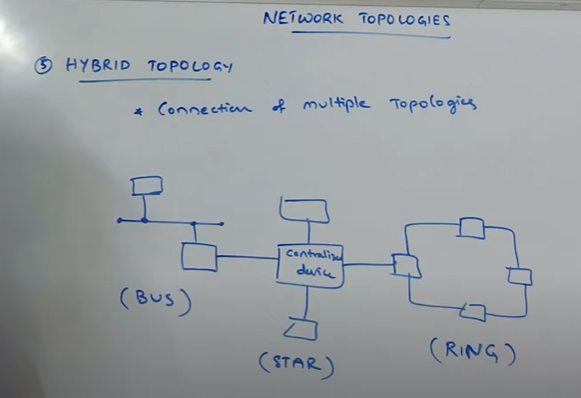 NETWORK TOPOLOGIES
⑤ HYBRID TOPOLOGY
* Connection of multiple Topologies
Centralized
device
(BUS)
(STAR)
(RING)